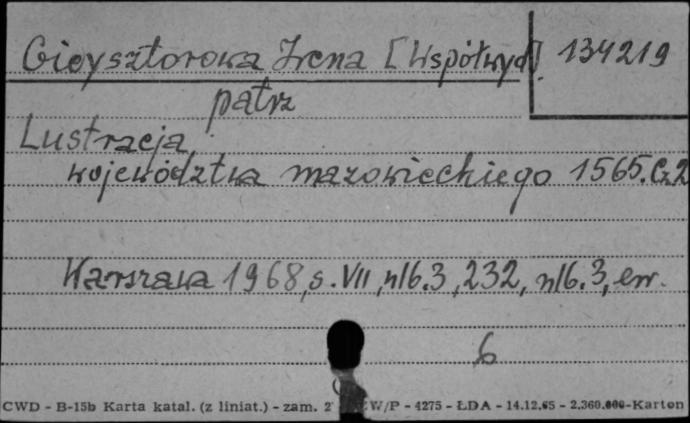 Gieysztorowa Irena [Współwyd]. 134219
patrz
Lustracja
województwa mazowieckiego 1565. Cz2
Warszawa 1968, s. VII, nlb. 3, 232, nlb. 3, err.
6
CWD - B-15b Karta katal. (z liniat.) - zam. 2 W/P - 4275 - ŁDA - 14.12.65 - 2.360.000-Karton